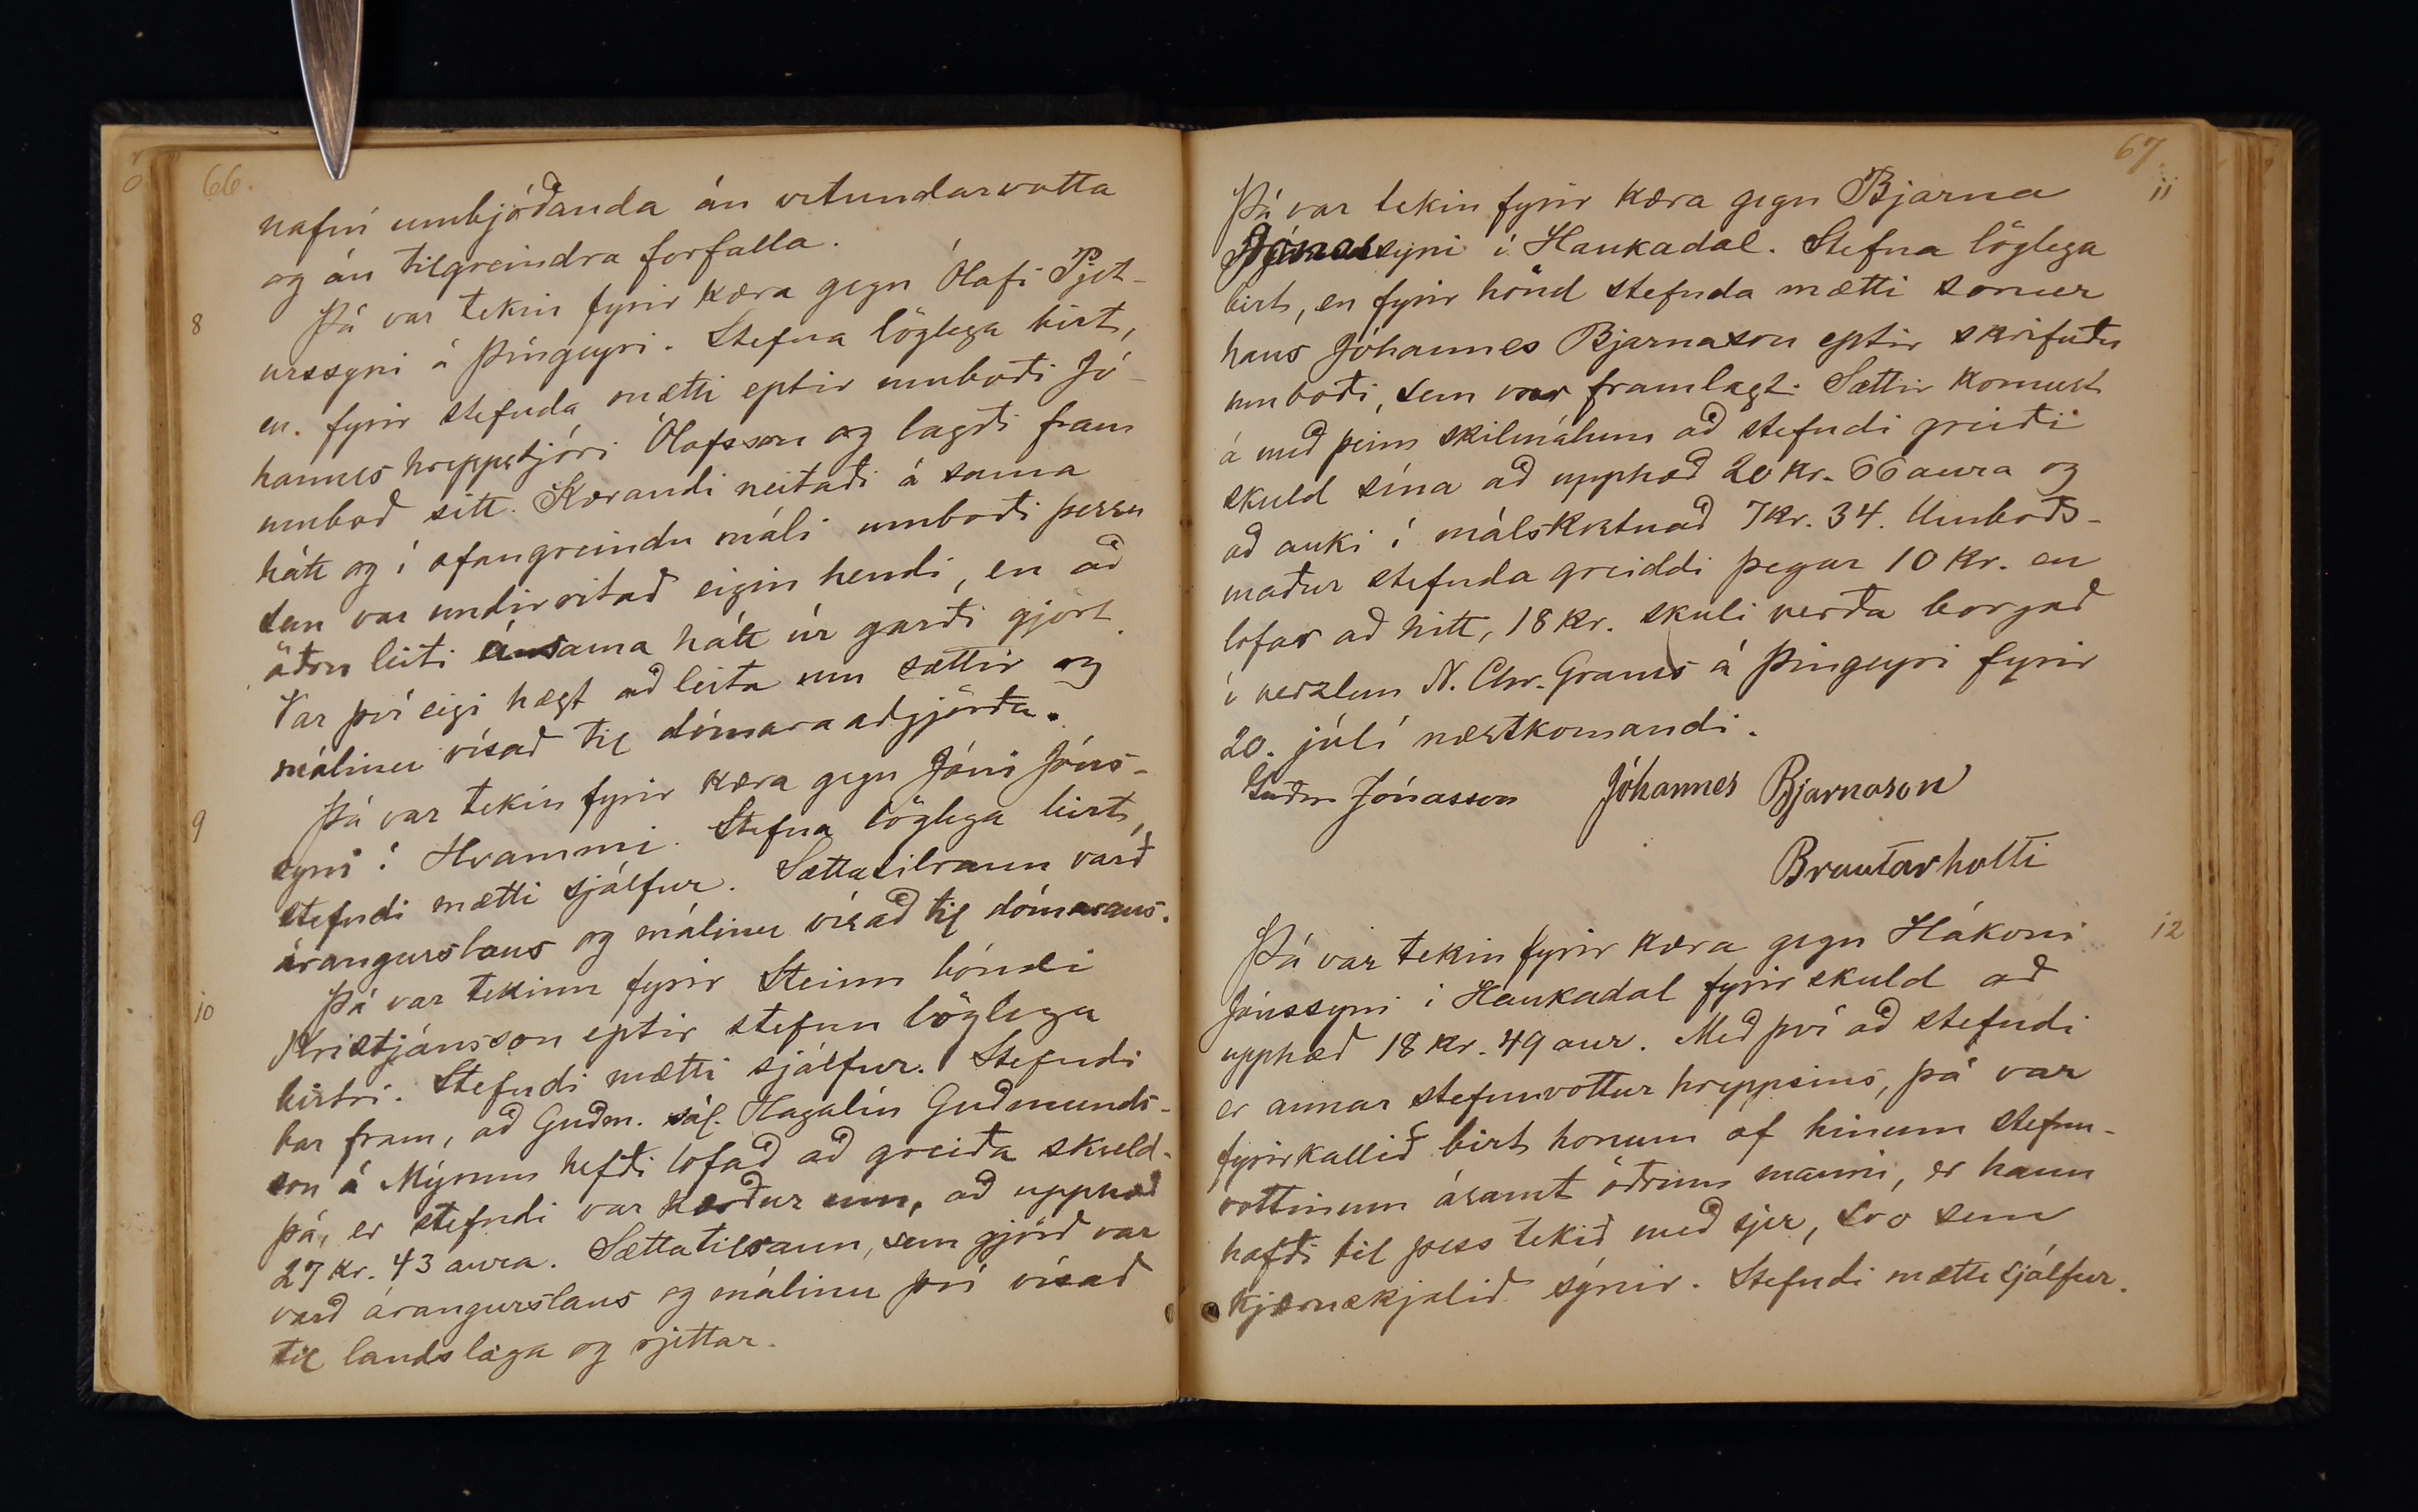 66.
nafni umbjóðanda án vitundarvotta
og án tilgreindra forfalla.
8 Þá var tekin fyrir kæra gegn Ólafi Pjet-
urssyni á Þingeyri. Stefna löglega birt,
en fyrir stefnda mætti eptir umboði Jó-
hannes hreppstjóri Ólafsson og lagði fram
umboð sitt. Kærandi neitaði á sama
hátt og í ofangreindu máli umboði þessu
sem var undirritað eigin hendi, en að
öðru leiti á sama hátt úr garði gjört.
Var því eigi hægt að leita um sættir og
málinu vísað til dómara aðgjörða.
9 Þá var tekin fyrir kæra gegn Jóni Jóns-
syni í Hvammi. Stefna löglega birt,
stefndi mætti sjálfur. Sættatilraun varð
árangurslaus og málinu vísað til dómarans.
10 Þá var tekinn fyrir Steinn bóndi
Kristjánsson eptir stefnu löglega
birtri. Stefndi mætti sjálfur. Stefndi
bar fram, að Guðm. sál. Hagalín Guðmunds-
son á Mýrum hefði lofað að greiða skuld
þá, er stefndi var kærður um, að upphæð
27 kr. 43 aura. Sættatilraun, sem gjörð var
varð árangurslaus og málinu því vísað
til landslaga og rjettar.
67.
Þá var tekin fyrir kæra gegn Bjarna 11
Jónassyni í Haukadal. Stefna löglega
birt, en fyrir hönd stefnda mætti sonur
hans Jóhannes Bjarnason eptir skrifuðu
umboði, sem var framlagt. Sættir komust
á með þeim skilmálum að stefndi greiði
skuld sína að upphæð 20 kr. 66 aura og
að auki í málskostnað 7 kr. 34. Umboðs-
maður stefnda greiddi þegar 10 kr. en
lofar að hitt, 18 kr. skuli verða borgað
í verzlun N. Chr. Grams á Þingeyri fyrir
20. júlí næstkomandi.
Guðm Jónasson Jóhannes Bjarnason
Brautarholti
Þá var tekin fyrir kæra gegn Hákoni 12
Jónssyni í Haukadal fyrir skuld að
upphæð 18 kr. 49 aur. Með því að stefndi
er annar stefnuvottur hreppsins, þá var
fyrirkallið birt honum af hinum stefnu-
vottinum ásamt öðrum manni, er hann
hafði til þess tekið með sjer, svo sem
kærnskjalið sýnir. Stefndi mætti sjálfur.